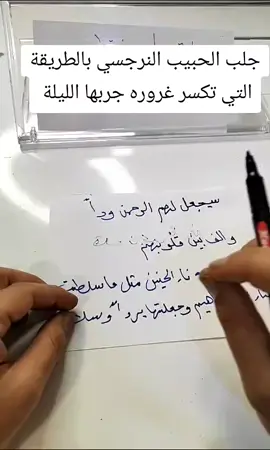 جلب الحبيب النرجسي بالطريقة
التي تكسر غروره جربها الليلة
سيجعل لهم الرحمن وداً
والف بين قلوبهم
مثل ما سلطت
وجعلتها برداً وسلا